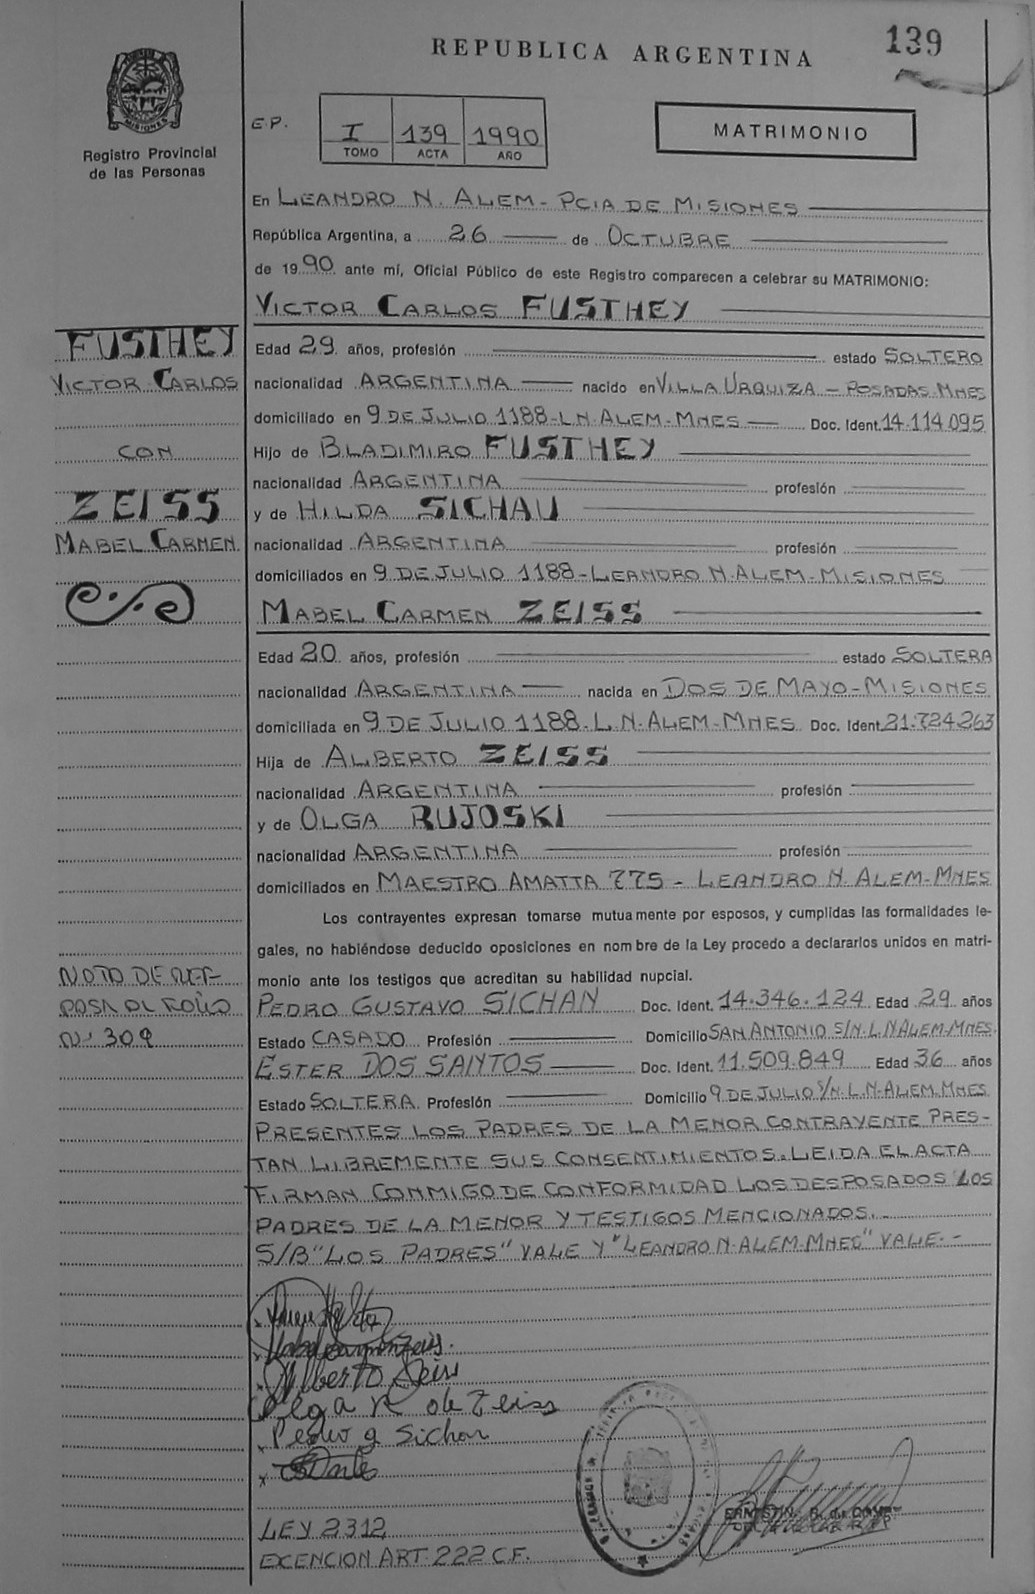 REPUBLICA ARGENTINA
139
MISIONES
Registro Provincial
de las Personas
E.P.
I 139 1990
TOMO ACTA AÑO
MATRIMONIO
En LEANDRO N. ALEM - PCIA DE MISIONES
República Argentina, a 26 de OCTUBRE
de 1990 ante mí, Oficial Público de este Registro comparecen a celebrar su MATRIMONIO:
VICTOR CARLOS FUSTHEY
FUSTHEY
VICTOR CARLOS
CON
ZEISS
MABEL CARMEN
Edad 29 años, profesión estado SOLTERO
nacionalidad ARGENTINA nacido en VILLA URQUIZA - POSADAS. MNES
domiciliado en 9 DE JULIO 1188-L.N. ALEM-MNES Doc. Ident. 14.114.095
Hijo de BLADIMIRO FUSTHEY
nacionalidad ARGENTINA profesión
y de HILDA SICHAU
nacionalidad ARGENTINA profesión
domiciliados en 9 DE JULIO 1188-LEANDRO N. ALEM-MISIONES
MABEL CARMEN ZEISS
Edad 20 años, profesión estado SOLTERA
nacionalidad ARGENTINA nacida en DOS DE MAYO-MISIONES
domiciliada en 9 DE JULIO 1188-L.N. ALEM-MNES Doc. Ident. 21.724.263
Hija de ALBERTO ZEISS
nacionalidad ARGENTINA profesión
y de OLGA RUJOSKI
nacionalidad ARGENTINA profesión
domiciliados en MAESTRO AMATTA 775 - LEANDRO N. ALEM-MNES
Los contrayentes expresan tomarse mutuamente por esposos, y cumplidas las formalidades le-
gales, no habiéndose deducido oposiciones en nombre de la Ley procedo a declararlos unidos en matri-
monio ante los testigos que acreditan su habilidad nupcial.
NOTA DE REF-
PASA AL FOLIO
Nº 309
PEDRO GUSTAVO SICHAN Doc. Ident. 14.346.124 Edad 29 años
Estado CASADO Profesión Domicilio SAN ANTONIO S/N. L.N ALEM-MNES.
ESTER DOS SANTOS Doc. Ident. 11.509.849 Edad 36 años
Estado SOLTERA Profesión Domicilio 9 DE JULIO S/N. L.N. ALEM MNES
PRESENTES LOS PADRES DE LA MENOR CONTRAYENTE PRES-
TAN LIBREMENTE SUS CONSENTIMIENTOS. LEIDA EL ACTA
FIRMAN CONMIGO DE CONFORMIDAD LOS DESPOSADOS LOS
PADRES DE LA MENOR Y TESTIGOS MENCIONADOS.-
S/B "LOS PADRES" VALE Y "LEANDRO N. ALEM-MNES" VALE.-
Alberto Seiss
Olga R de Zeiss
Pedro g Sichan
LEY 2312
EXENCION ART. 222 C.F.